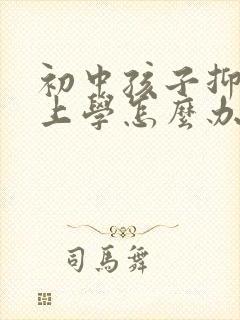 初中孩子抑
上學怎麼办
司馬舞